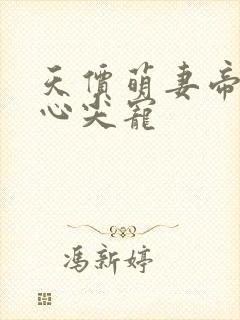 天價萌妻帝
心尖寵
馮新婷